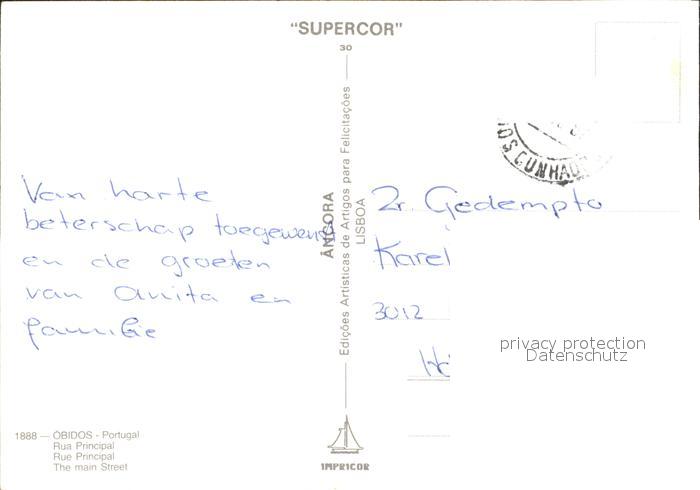 "SUPERCOR"
30
Van harte
beterschap toegewenst
en de groeten
van Anita en
familie
ÂNCORA
Edições Artísticas de Artigos para Felicitações
LISBOA
CUNHAD
Zr. Gedempta
Karel
3012
privacy protection
Datenschutz
1888 — ÓBIDOS - Portugal
Rua Principal
Rue Principal
The main Street
IMPRICOR